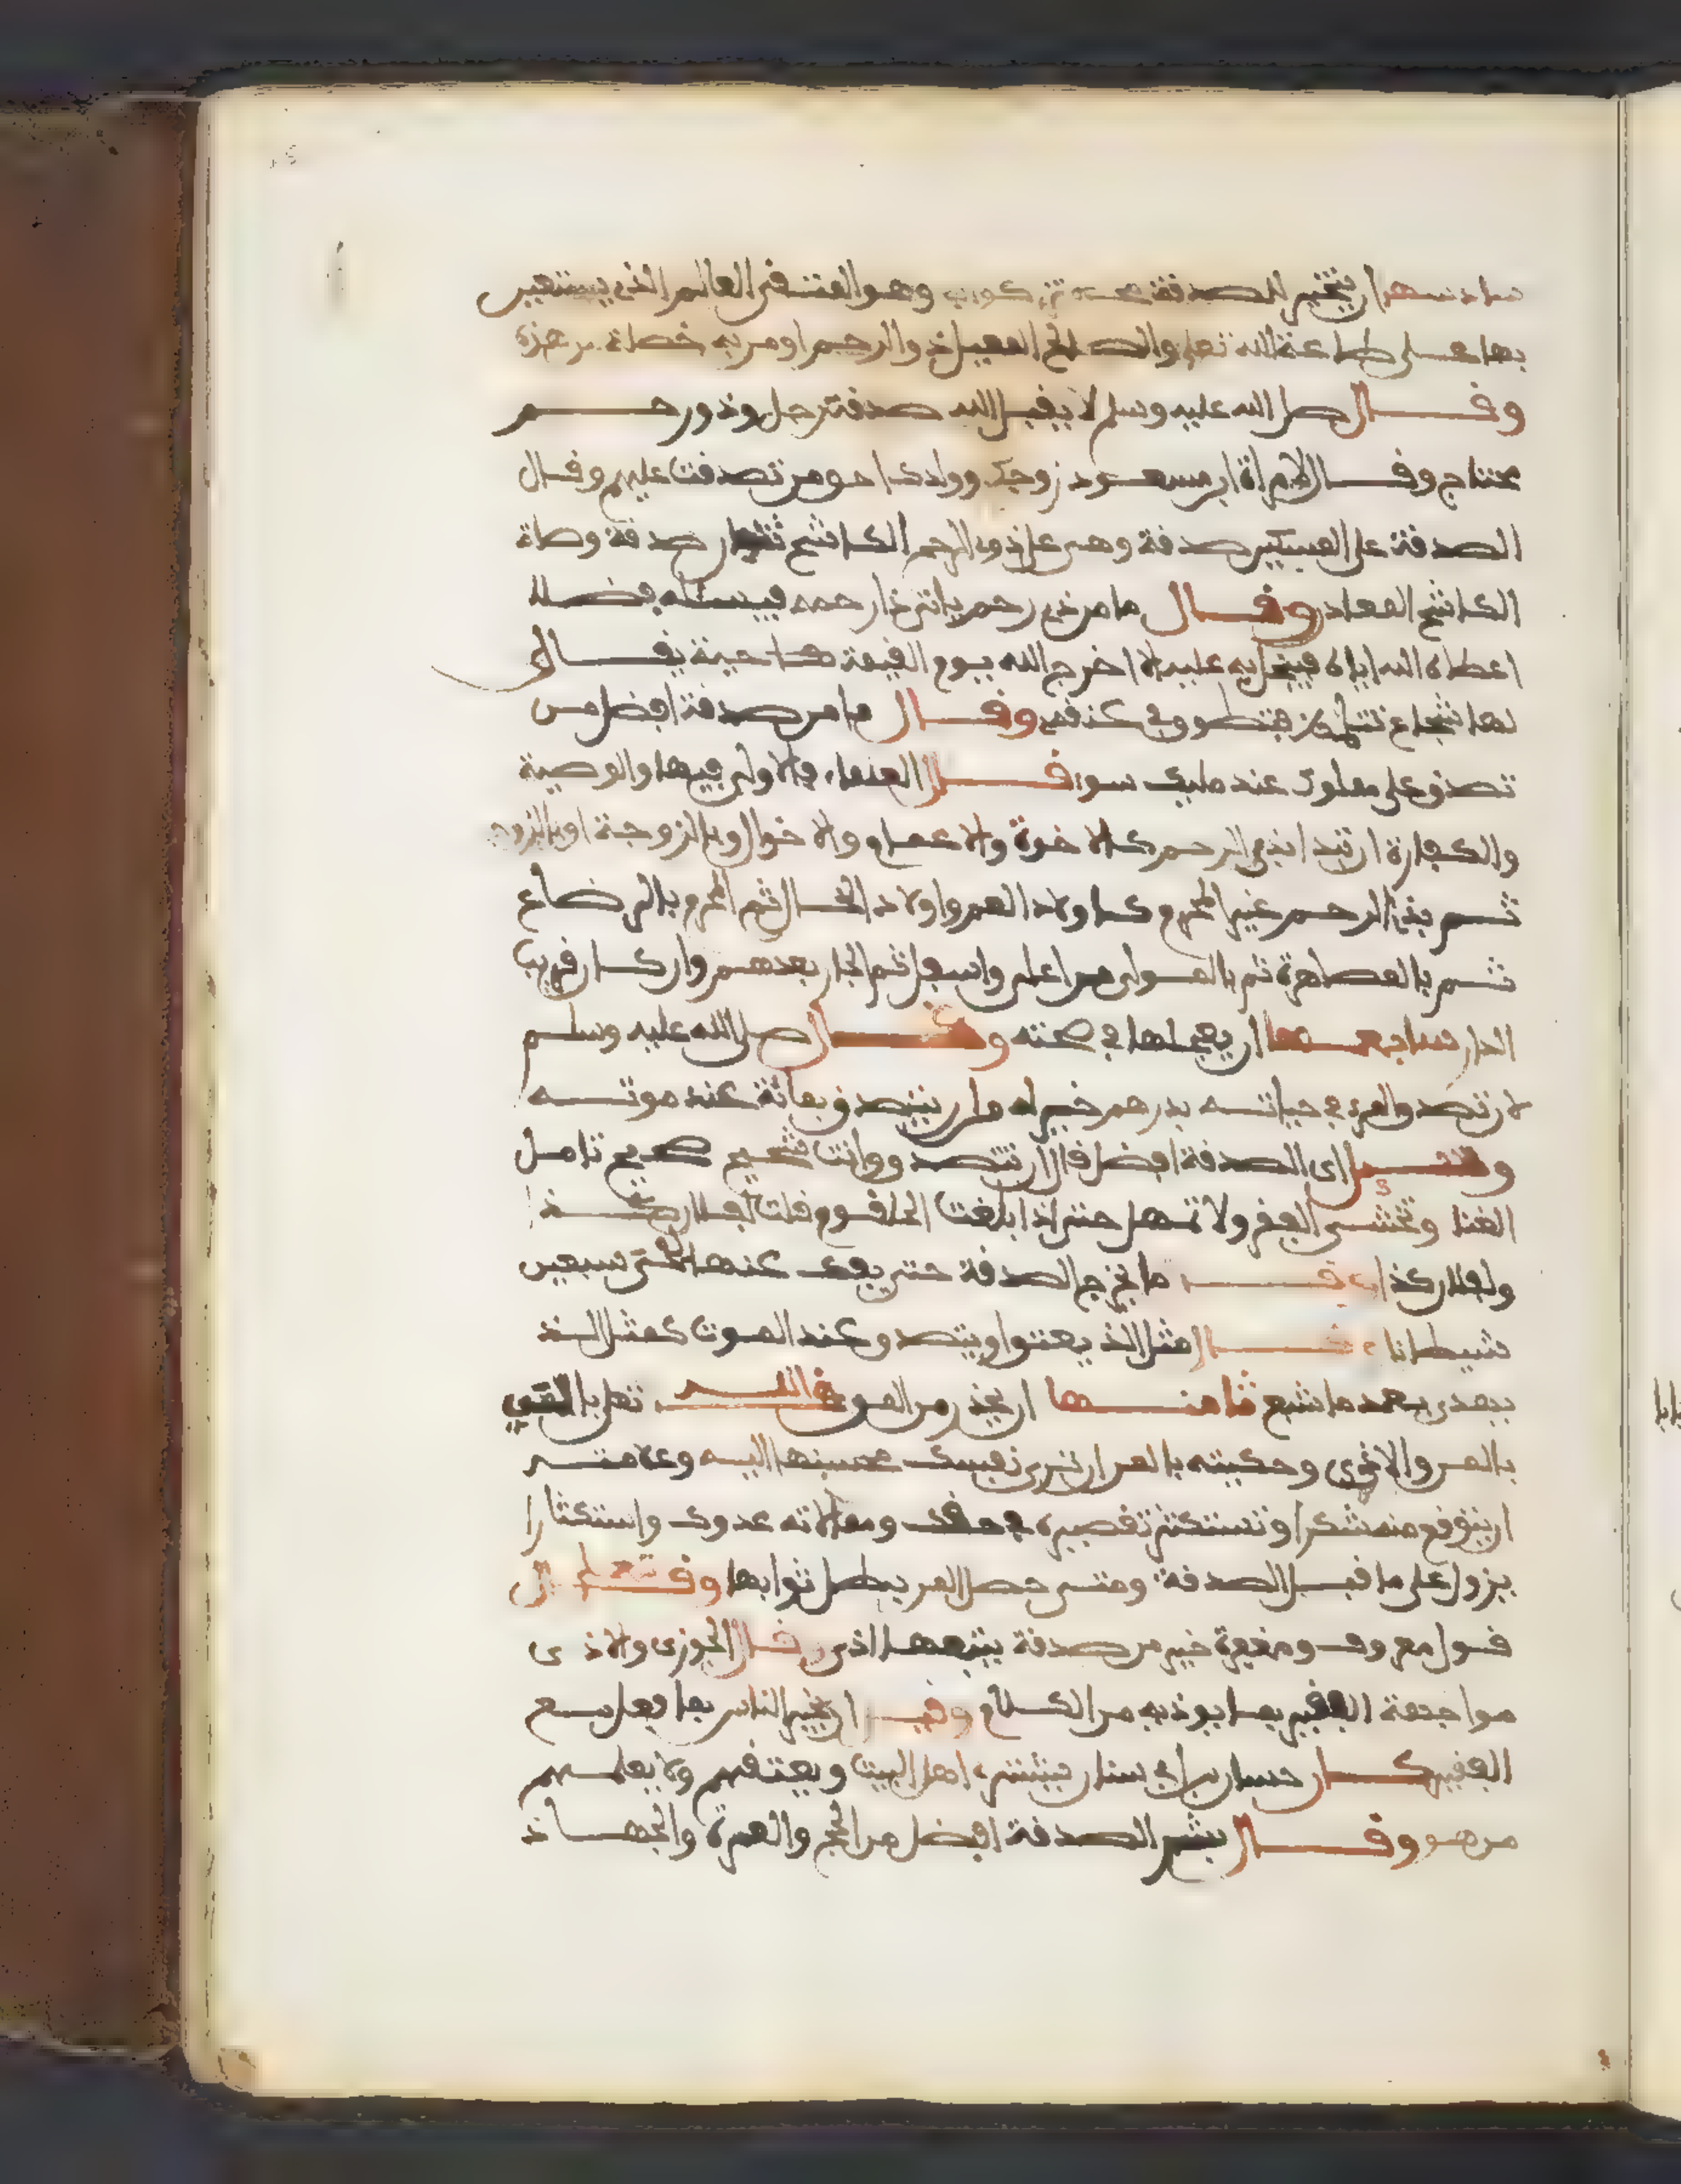 سادسها ان يتخير لصدقته من تزكوا به وهو المتقي العالم الذي يستعين
بها على طاعة الله تعلى والصالح المعيل ذو الرحم او من به خصلة من هذه
وقال صلى الله عليه وسلم لا يقبل الله صدقة رجل وذو رحم
محتاج وقال لامراة ابن مسعود زوجك وولدك احق من تصدقت عليهم وقال
الصدقة على المسكين صدقة وهي على ذي الرحم الكاشح ثنتان صدقة وصلة
الكاشح المعاد وقال ما من ذي رحم ياتي ذا رحمه فيسئله فضلا
اعطاه الله اياه فيبخل به عليه الا اخرج الله يوم القيمة حية يقال
لها شجاع تتلمظ فتطوق في عنقه وقال ما من صدقة افضل من
تصدق على مملوك عند مليك سوء قال العلماء والاولى فيها والوصية
والكفارة ان تبدا بذي الرحم كالاخوة والاعمام والاخوال وبالزوجة او بالزوج
ثم بذي الرحم غير المحرم كاولاد العم واولاد الخال ثم المحرم بالرضاع
ثم بالمصاهرة ثم بالمولى من اعلى واسفل ثم الجار بعدهم وان كان قريب
الدار سابعها ان يجعلها في صحته وقال صلى الله عليه وسلم
لان تصدق المرء في حياته بدرهم خير له من ان يتصدق بمائة عند موته
وقيل اي الصدقة افضل قال ان تتصدق وانت شحيح صحيح تامل
الغنا وتخشى الفقر ولا تمهل حتى اذا بلغت الحلقوم قلت لفلان كذا
ولفلان كذا ما تخرج الصدقة حتى يفك عنها لحي سبعين
شيطانا وقال مثل الذي يعتق او يتصدق عند الموت كمثل الذي
يهدي بعد ما شبع ثامنها ان يحذر من المن قال تعلى
بالمن والاذى وحقيقته بالمن ان ترى نفسك محسنا اليه وعلامته
ان تتوقع منه شكرا وتستكثر تقصيره في حقك وموالاته عدوك واستكثارا
يزول على ما قبل الصدقة ومتى حصل المن بطل ثوابها وقال تعلى
قول معروف ومغفرة خير من صدقة يتبعها اذى وقال الجوزي والاذى
مواجهة الفقير بما يوذيه من الكلام وقيل ان يخبر الناس بما فعل مع
الفقير كان حسان بن ابي سنان يشتري اهل البيت ويعتقهم ولا يعلمهم
من هو وقال بشر الصدقة افضل من الحج والعمرة والجهاد